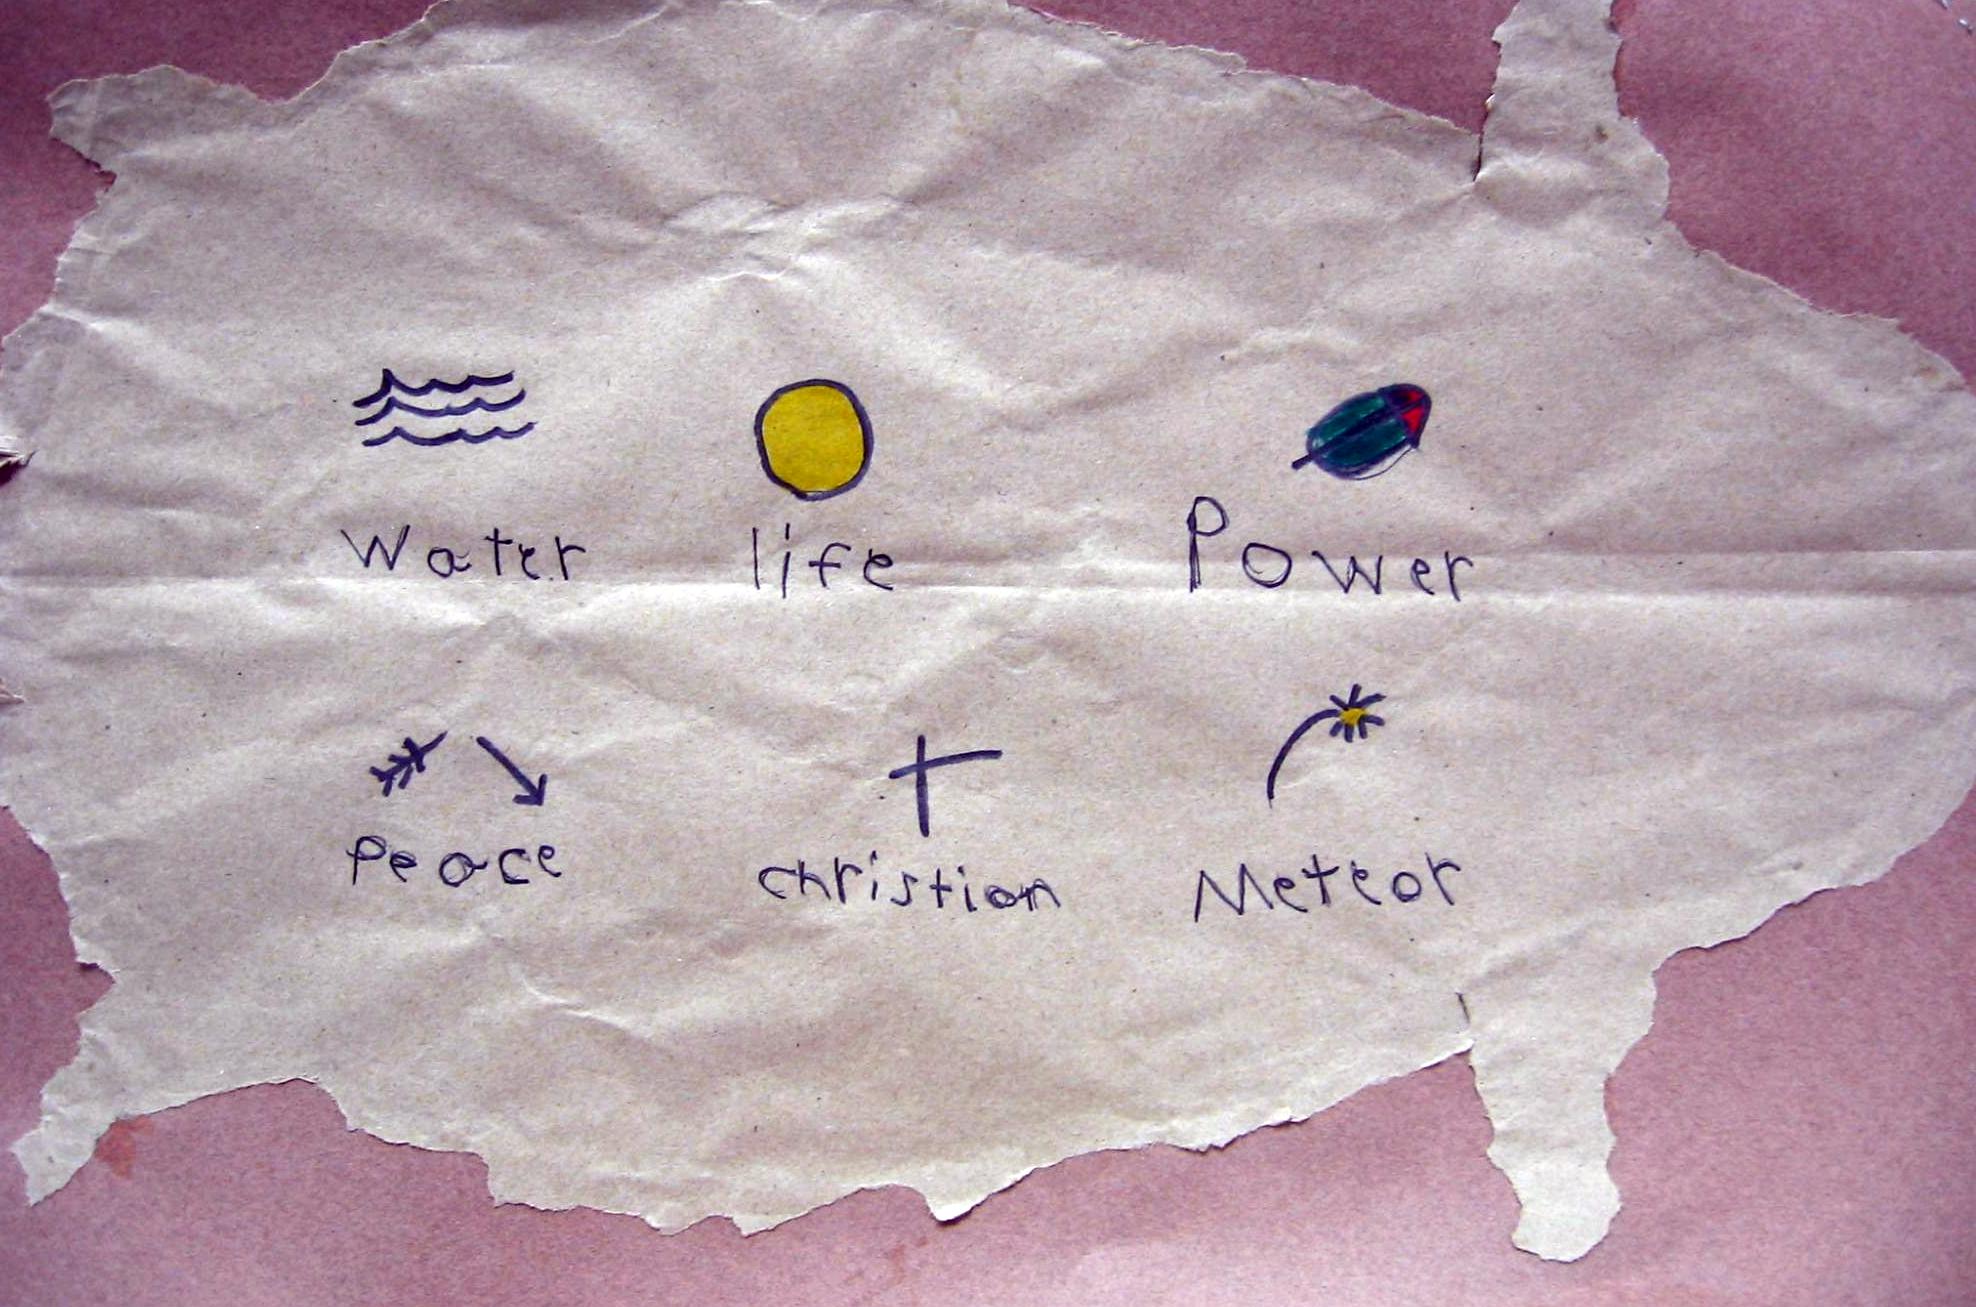 Water life Power
Peace christian Meteor